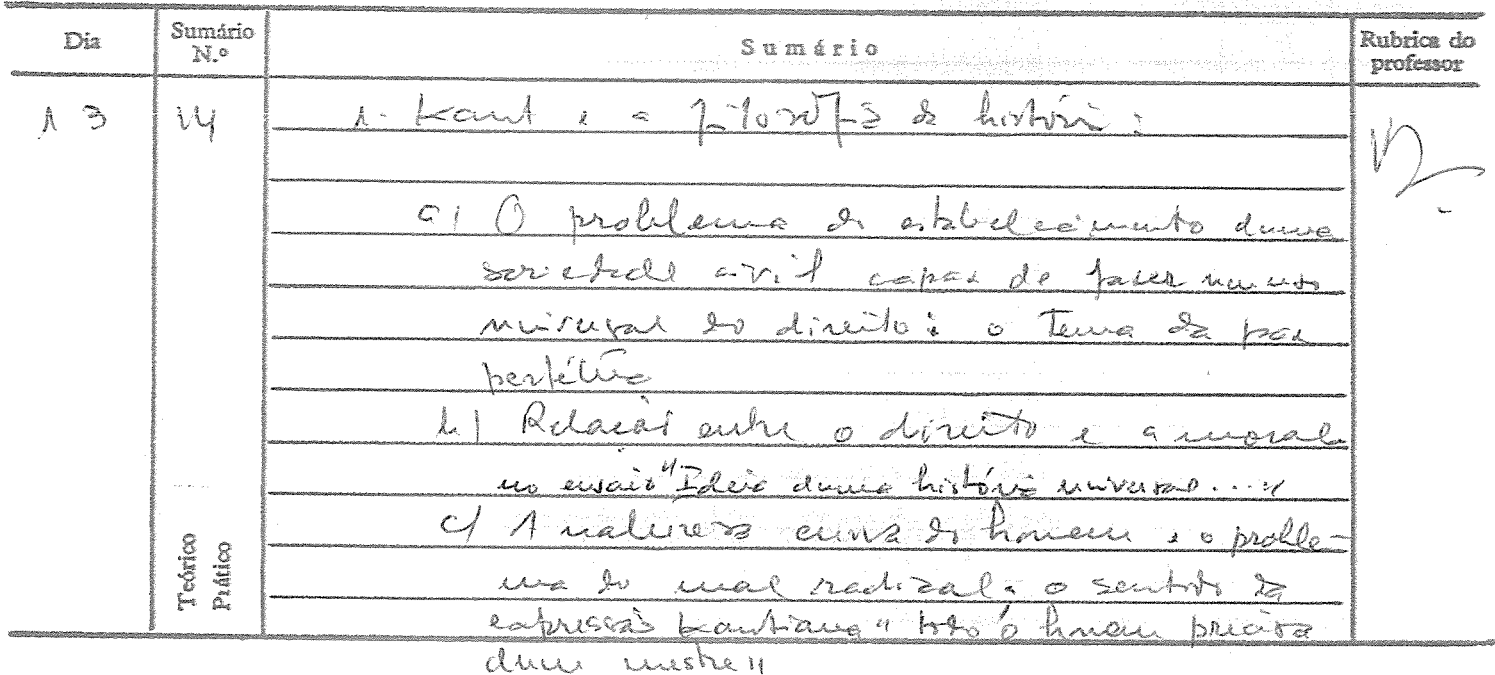 Dia Sumário N.º Sumário Rubrica do professor
13 14 1. Kant e a filosofia da história:
a) O problema do estabelecimento duma
sociedade civil capaz de fazer
universal do direito: o tema da paz
perpétua
b) Relação entre o direito e a moral
no ensaio "Ideia duma história universal..."
c) A natureza curva do homem e o proble-
ma do mal radical: o sentido da
expressão kantiana "todo o homem precisa
dum mestre"
Teórico
Prático